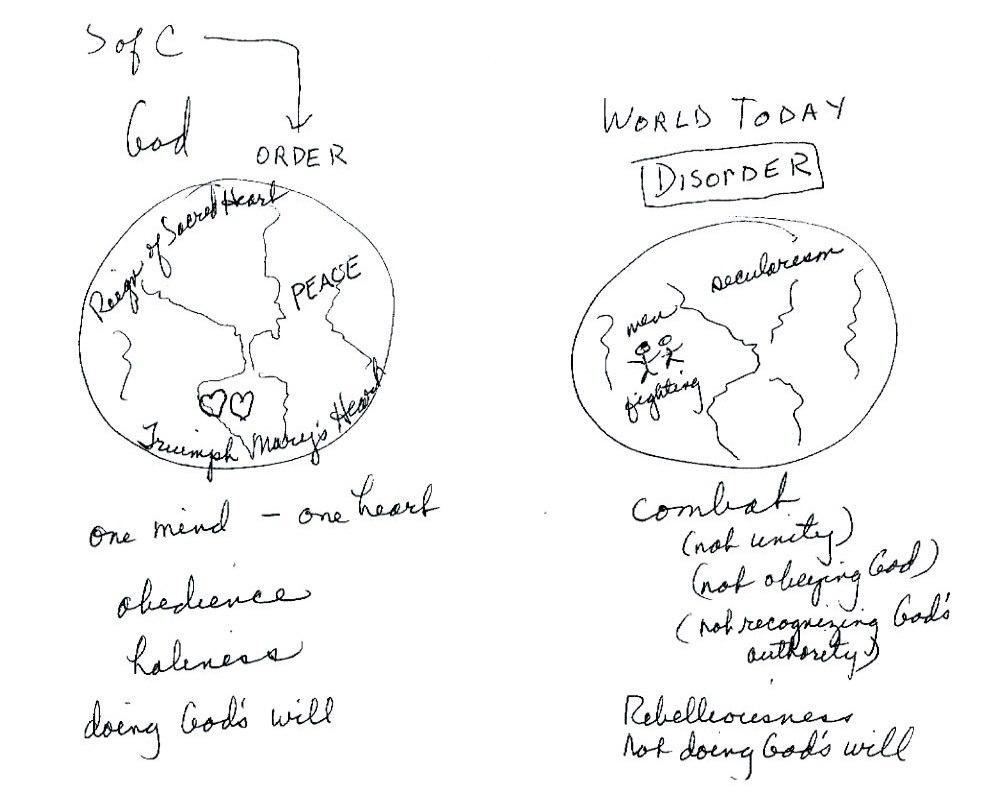 S of C
God
ORDER
Reign of Sacred Heart
PEACE
Triumph Mary's Heart
one mind - one heart
obedience
holiness
doing God's will
WORLD TODAY
DISORDER
secularism
men
fighting
combat
(not unity)
(not obeying God)
(not recognizing God's
authority)
Rebelliousness
Not doing God's will